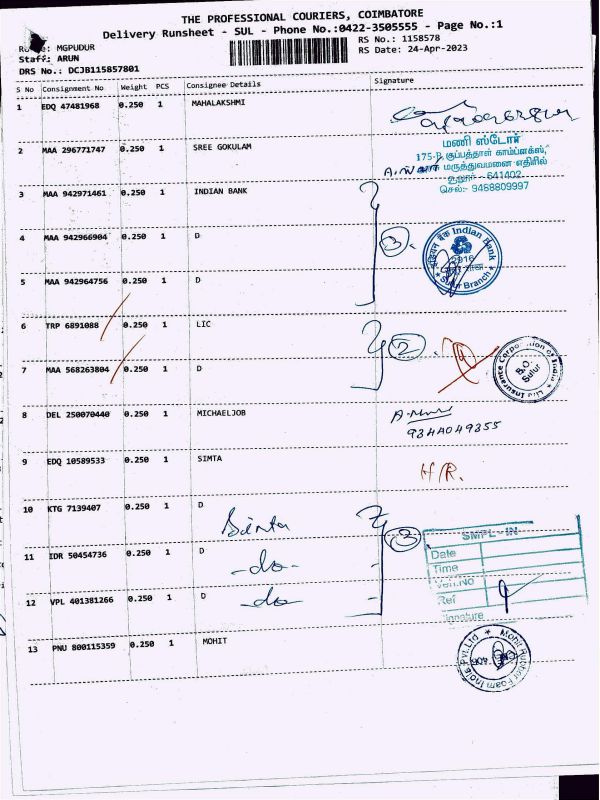 THE PROFESSIONAL COURIERS, COIMBATORE
Delivery Runsheet - SUL - Phone No.:0422-3505555 - Page No.:1
MGPUDUR
RS No.: 1158578
Staff: ARUN
RS Date: 24-Apr-2023
DRS No.: DCJB115857801
S No Consignment No Weight PCS Consignee Details Signature
1 EDQ 47481968 0.250 1 MAHALAKSHMI
2 MAA 296771747 0.250 1 SREE GOKULAM
மணி ஸ்டோர்
175-B, குப்பத்தாள் காம்ப்ளக்ஸ்,
மருத்துவமனை எதிரில்
641402
செல்:- 9488809997
3 MAA 942971461 0.250 1 INDIAN BANK
4 MAA 942966904 0.250 1 D
3.
इंडियन बैंक Indian Bank
2016
Sulur Branch
5 MAA 942964756 0.250 1 D
6 TRP 6891088 0.250 1 LIC
2.
Life Insurance Corporation of India
B.O.
Sulur
7 MAA 568263804 0.250 1 D
8 DEL 250070440 0.250 1 MICHAELJOB
9344049355
9 EDQ 10589533 0.250 1 SIMTA
H/R.
10 KTG 7139407 0.250 1 D
Simta
3
SMPL-IN
11 IDR 50454736 0.250 1 D
-do-
Date
Time
Veh.No
12 VPL 401381266 0.250 1 D
-do-
Ref
Signature
13 PNU 800115359 0.250 1 MOHIT
Mohit Rubber Foam India Pvt.Ltd